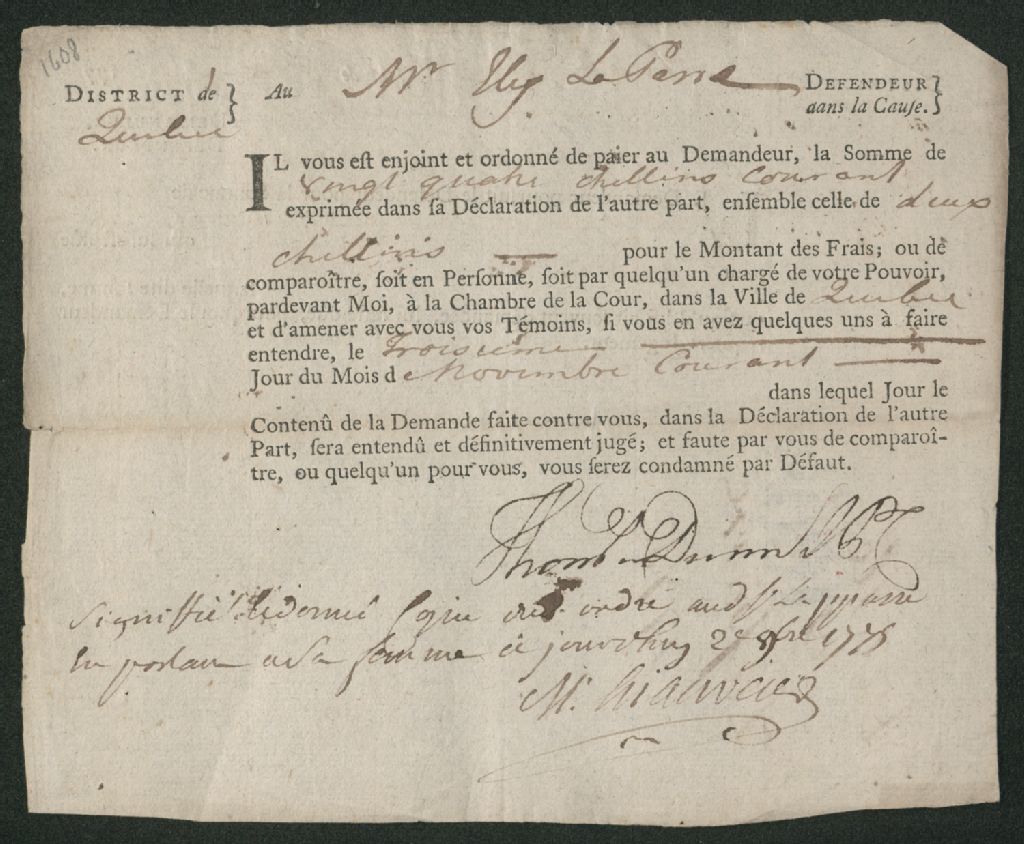 1608
DISTRICT de } Au Mr Ely LePerre DEFENDEUR }
Quebec dans la Cauſe. }
IL vous eſt enjoint et ordonné de païer au Demandeur, la Somme de
Vingt quatre chellins Courant
exprimée dans ſa Déclaration de l'autre part, enſemble celle de deux
chellins pour le Montant des Frais; ou de
comparoître, ſoit en Perſonne, ſoit par quelqu'un chargé de votre Pouvoir,
pardevant Moi, à la Chambre de la Cour, dans la Ville de Quebec
et d'amener avec vous vos Témoins, ſi vous en avez quelques uns à faire
entendre, le Troisieme
Jour du Mois de Novembre Courant
dans lequel Jour le
Contenû de la Demande faite contre vous, dans la Déclaration de l'autre
Part, ſera entendû et définitivement jugé; et faute par vous de comparoî-
tre, ou quelqu'un pour vous, vous ſerez condamné par Défaut.
Thoms Dunn
Signiffié & donné Copie du ordre aud Sr
En parlant a sa femme ce jourdhuy 2e 9bre